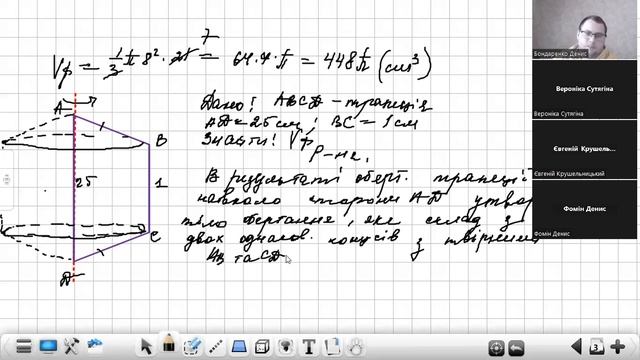 7
Vф = 1/3 π 8² · 21 = 64 · 7 · π = 448 π (см³)
Дано: ABCD – трапеція
AD = 25 см; BC = 1 см
Знайти: Vф
Р-нє.
В результаті оберт. трапеції
навколо сторони AD утвор
тіло обертання, яке склад з
двох однаков. конусів з твірними
AB та CD
A
B
25
1
C
D
Бондаренко Денис
Вероніка Сутягіна
Вероніка Сутягіна
Євгеній Крушель...
Євгеній Крушельницький
Фомін Денис
Фомін Денис
3